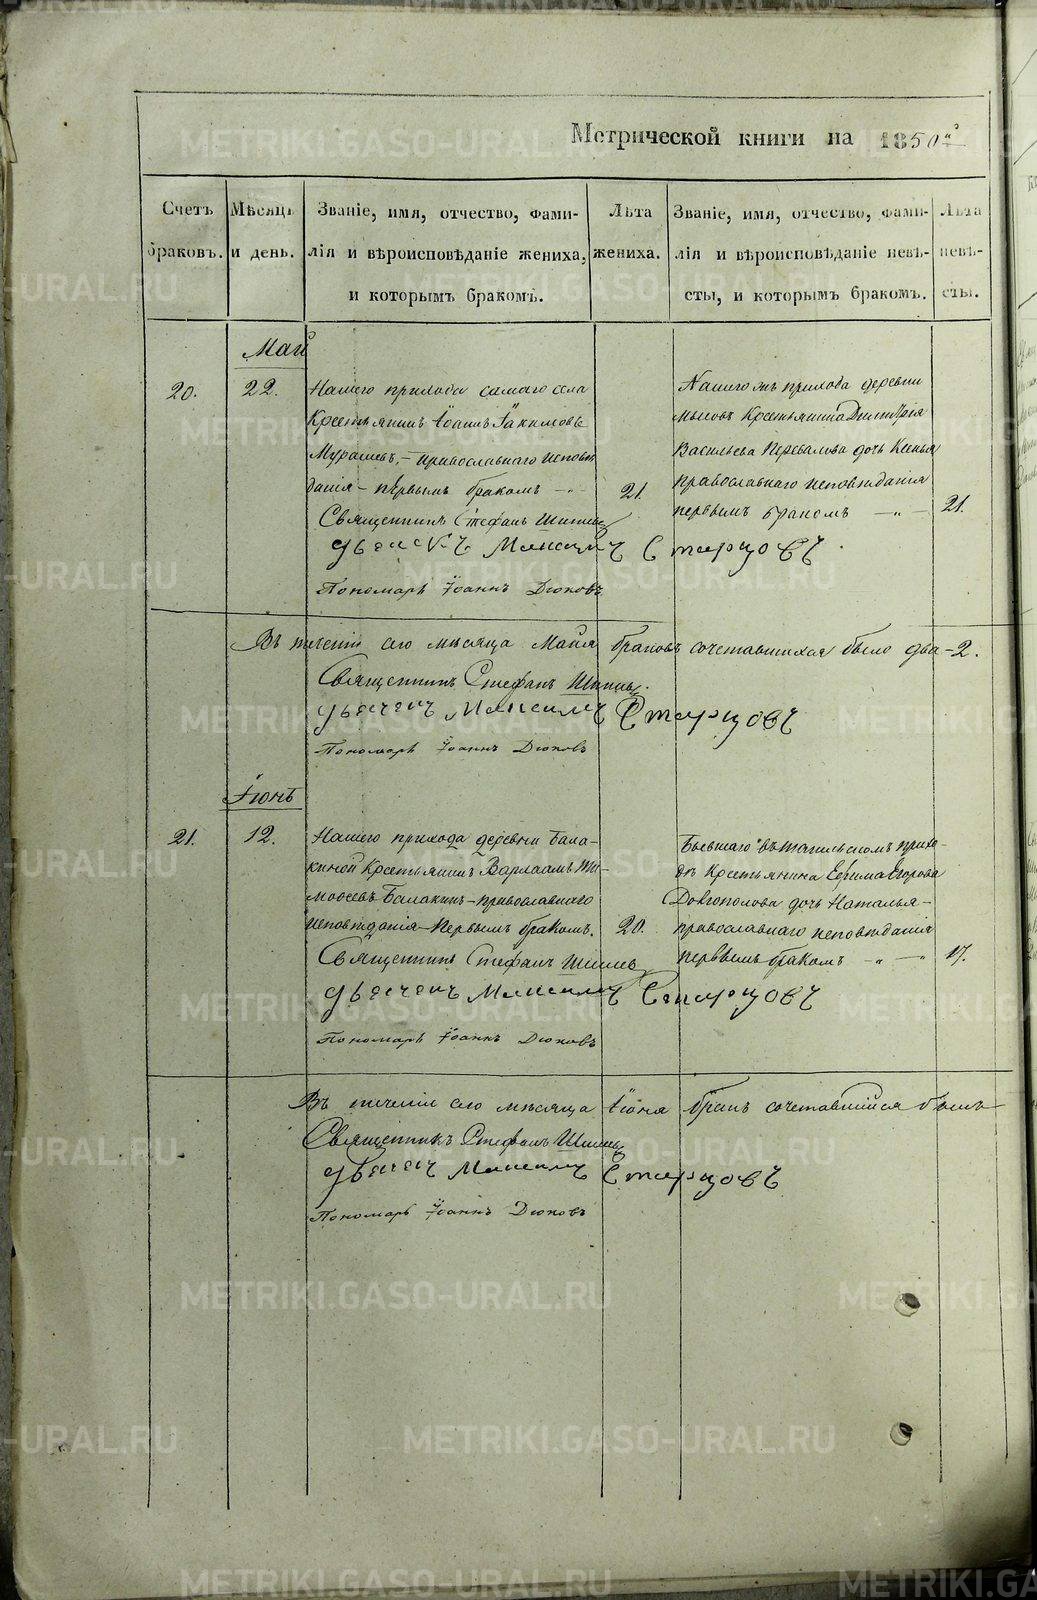 Метрической книги на 1850й
Счетъ браковъ.
Мѣсяцъ и день.
Званіе, имя, отчество, фами-
лія и вѣроисповѣданіе жениха,
и которымъ бракомъ.
Лѣта
жениха.
Званіе, имя, отчество, фами-
лія и вѣроисповѣданіе невѣ-
сты, и которымъ бракомъ.
Лѣта
невѣ-
сты.
Май
20.
22.
Нашего прихода самаго села
Крестьянинъ Іоаннъ Іакимовъ
Мурашевъ, – православнаго исповѣ
данія – первымъ бракомъ – „ –
21.
Нашего жъ прихода деревни
Крестьянина Димитрія
Васильева Перевалова дочь Ксенья
православнаго исповѣданія
первымъ бракомъ – „ –
21.
Священникъ Стефанъ
Дьячекъ Максимъ Старцовъ.
Пономарь Іоаннъ Дюковъ
Въ теченіи сего мѣсяца Майя браковъ сочетавшихся было два – 2.
Священникъ Стефанъ
Дьячекъ Максимъ Старцовъ
Пономарь Іоаннъ Дюковъ
Іюнь
21.
12.
Нашего прихода деревни Бала-
киной Крестьянинъ Варлаамъ Ти-
моѳеевъ Балакинъ – православнаго
исповѣданія – Первымъ бракомъ.
20.
Бывшаго въ Тагильскомъ прихо-
дѣ Крестьянина Ефима Егорова
Довгополова дочь Наталья –
православнаго исповѣданія
первымъ бракомъ – „ –
17.
Священникъ Стефанъ
Дьячекъ Максимъ Старцовъ
Пономарь Іоаннъ Дюковъ
Въ теченіи сего мѣсяца Іюня бракъ сочетавшійся былъ
Священникъ Стефанъ
Дьячекъ Максимъ Старцовъ
Пономарь Іоаннъ Дюковъ
METRIKI.GASO-URAL.RU